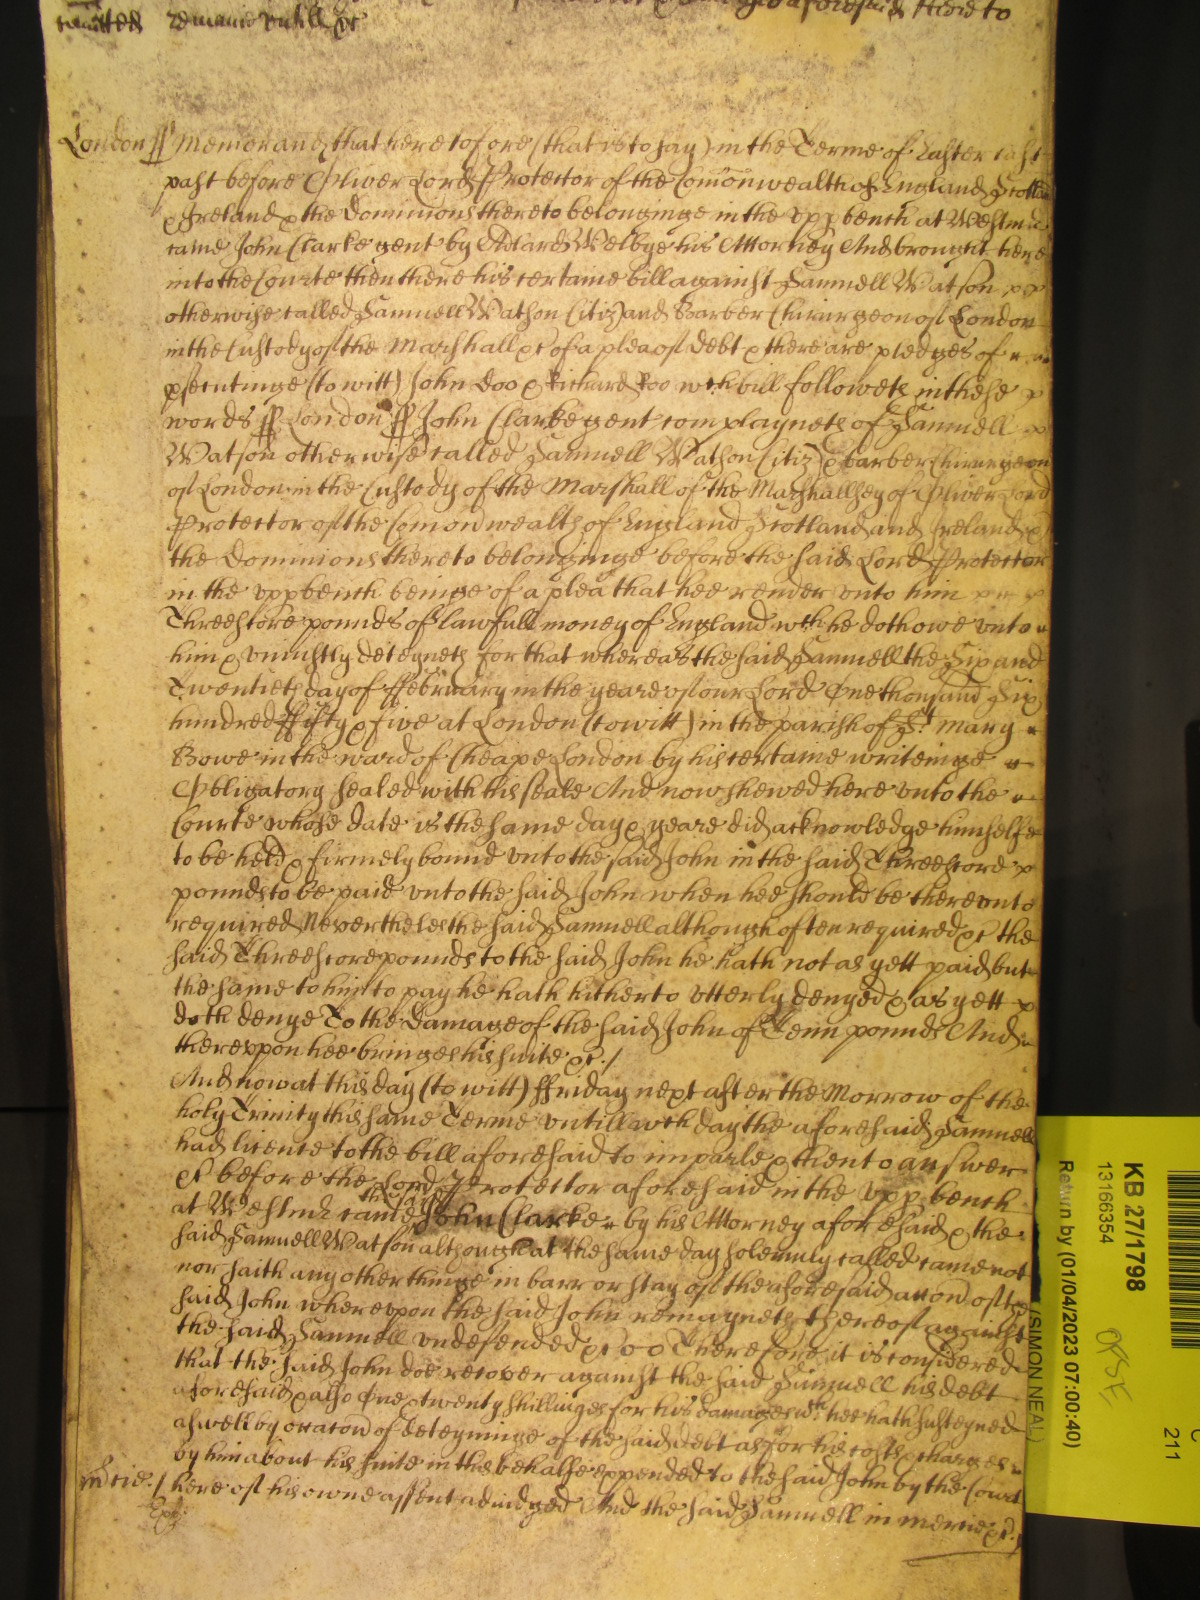 aforesaid there to
London ss Memorand that heretofore (that is to say) in the Terme of Easter last
past before Oliver Lord Protector of the Comonwealth of England Scotland
& Ireland & the Dominions thereto belonginge in the upp bench at Westmr
came John Clarke gent by Edward Welbye his Attorney And brought here
into the Courte then there his certaine bill against Samuell Watson
otherwise called Samuell Wathon Citiz and Barber Chirurgeon of London
in the Custody of the Marshall &c of a plea of debt & there are pledges of
psecutinge (to witt) John doo & Richard Roo wch bill followeth in these
words ss London ss John Clarke gent complayneth of Samuell
Watson otherwise called Samuell Wathon Citiz & barber Chirurgeon
of London in the Custody of the Marshall of the Marshallsey of Oliver Lord
Protector of the Comonwealth of England Scotland and Ireland &
the Dominions thereto belonginge before the said Lord Protector
in the upp bench beinge of a plea that hee render unto him
Threescore pounds of lawfull money of England wch he doth owe unto
him & uniustly deteyneth for that whereas the said Samuell the Six and
Twentieth day of ffebruary in the yeare of our Lord One thousand Six
hundred ffifty & five at London (to witt) in the parish of St Mary
Bowe in the ward of Cheape London by his certaine writeinge
Obligatory sealed with his seale And now shewed here unto the
Courte whose date is the same day & yeare did acknowledge himselfe
to be held & firmely bound unto the said John in the said Threescore
pounds to be paid unto the said John when hee should be thereunto
required Neverthelesthe said Samuell although often required &c the
said Threescore pounds to the said John he hath not as yett paid but
the same to him to pay he hath hitherto utterly denyed & as yett
doth denye To the Damage of the said John of Tenn pounds And
thereuppon hee bringes his suite &c./
And now at this day (to witt) ffriday next after the Morrow of the
holy Trinity this same Terme untill wch day the aforesaid Samuell
had licence to the bill aforesaid to imparle & then to answer
&c before the Lord Protector aforesaid in the upp bench
at Westmr came the said John Clarke by his Attorney aforesaid & the
said Samuell Watson although at the same day solemnly called came not
nor saith any other thinge in barr or stay of the aforesaid accon of the
said John whereuppon the said John remayneth thereof against
the said Samuell undefended &c Therefore it is considered
that the said John doe recover against the said Samuell his debt
aforesaid & also One & twenty shillinges for his damages wch hee hath susteyned
aswell by occacon of deteyninge of the said debt as for his costs & charges
by him about his suite in this behalfe expended to the said John by the Court
Mercie./ here of his owne assent adiudged And the said Samuell in mercie &c./
KB 27/1798
13166354
Return by (01/04/2023 07:00:40)
(SIMON NEAL)
211